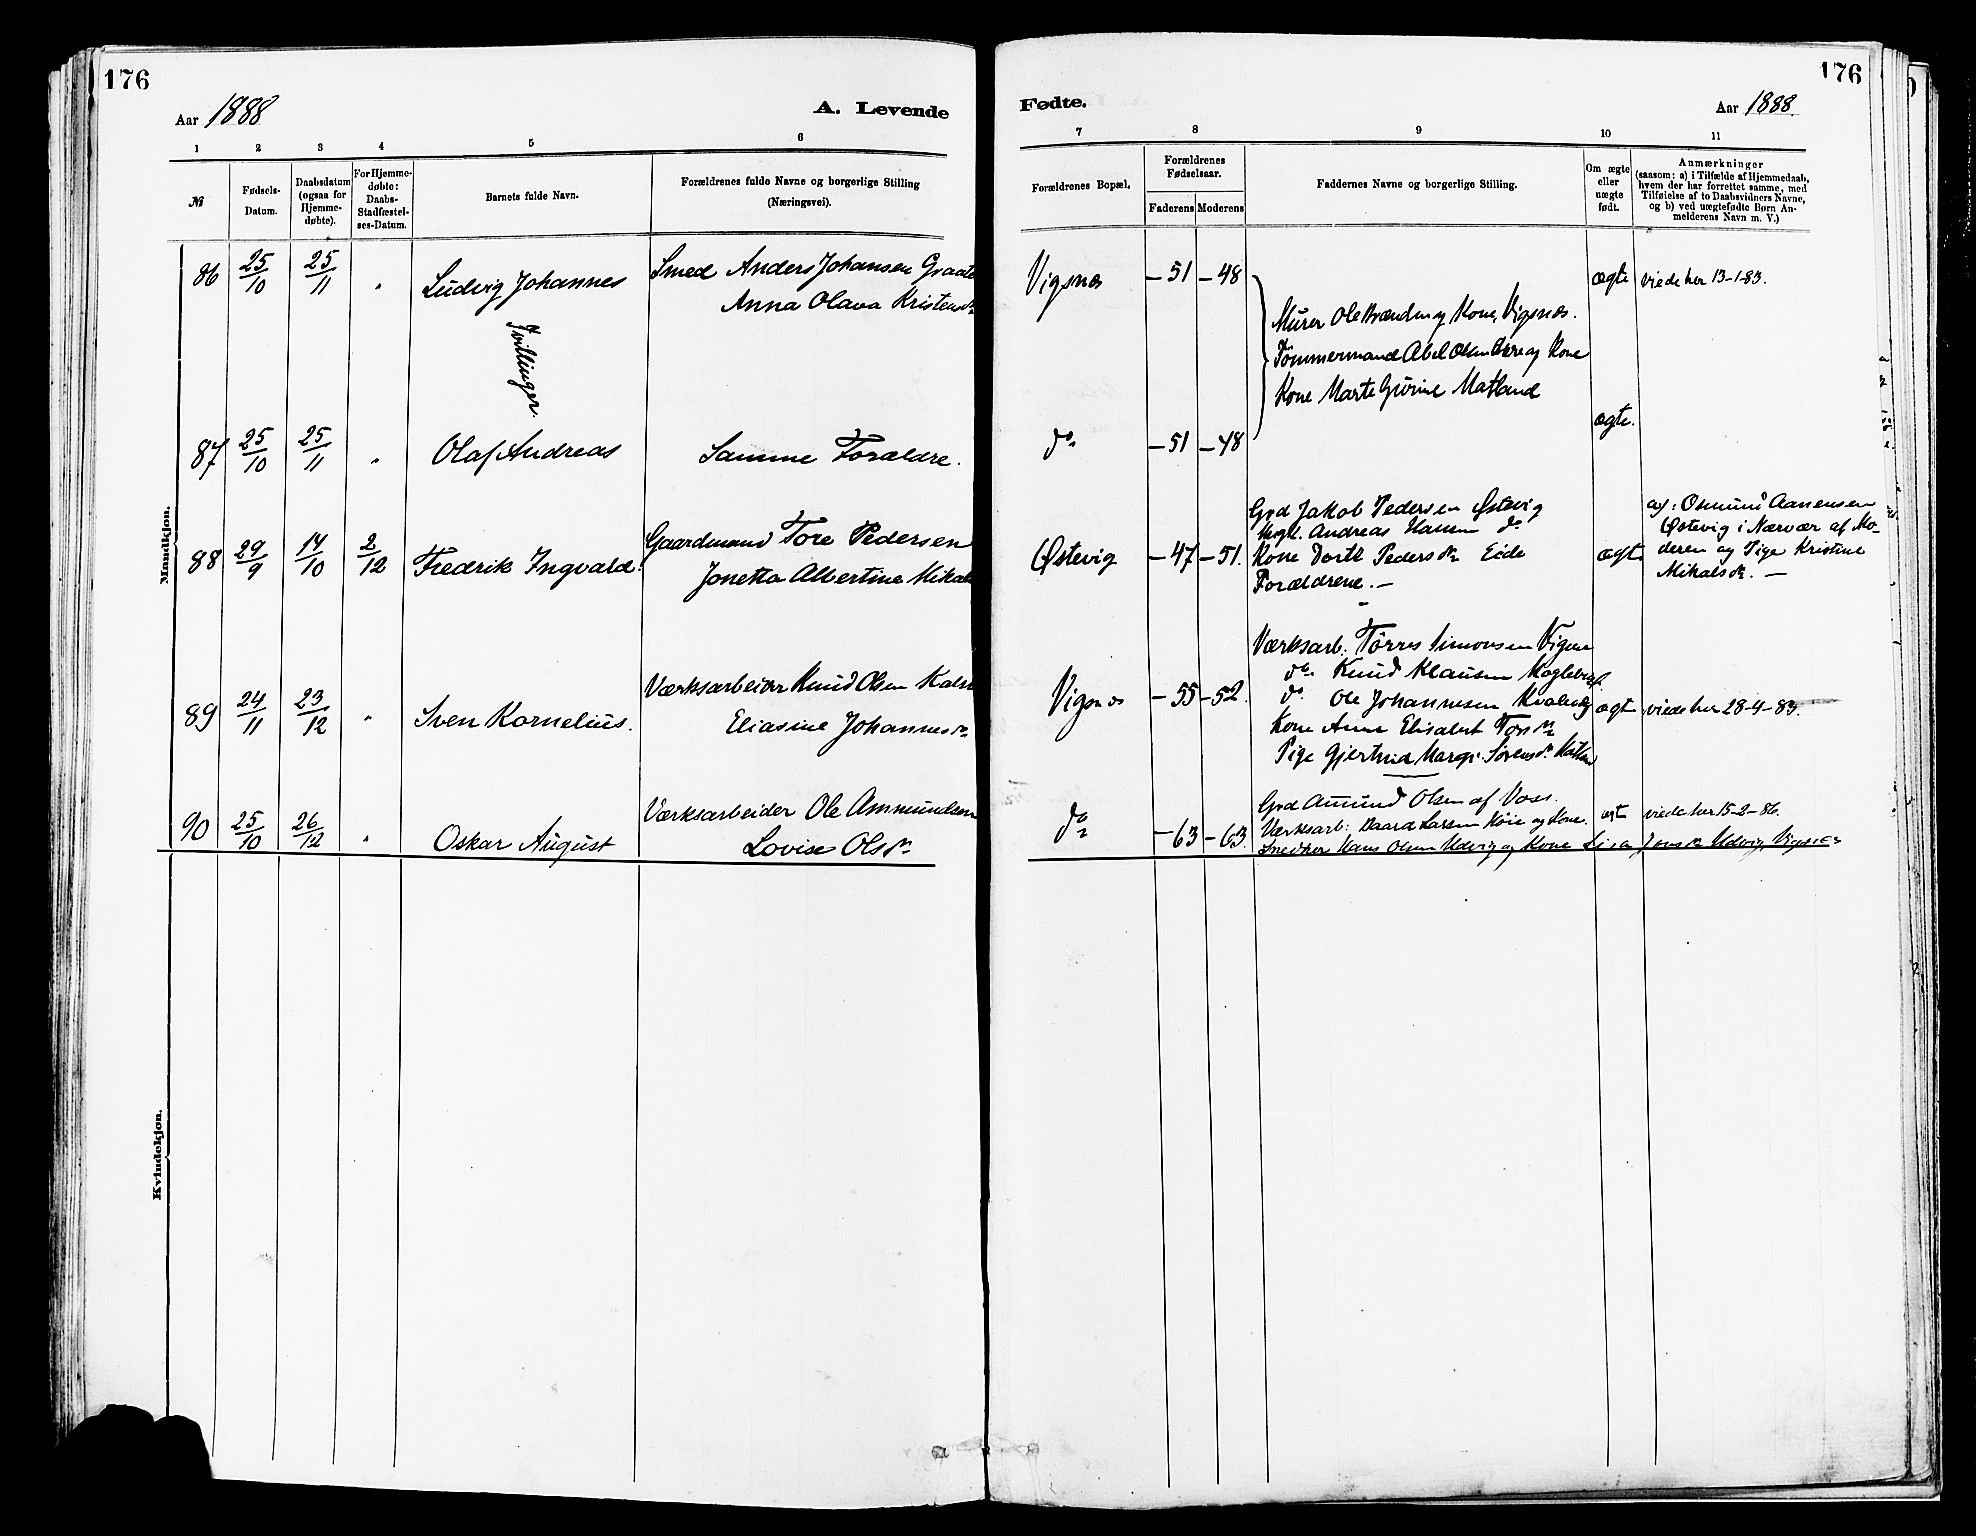 176
Aar 1888
A. Levende
1 2 3 4 5 6
№
Fødsels-Datum.
Daabsdatum (ogsaa for Hjemme-døbte).
For Hjemme-døbte: Daabs-Stadfæstel-ses-Datum.
Barnets fulde Navn.
Forældrenes fulde Navne og borgerlige Stilling
(Næringsvei).
Mandkjøn.
86 25/10 25/11 " Ludvig Johannes Smed Anders Johansen
Anna Olava Kristensdr
Tvillinger
87 25/10 25/11 " Olaf Andreas Samme Forældre.
88 29/9 14/10 2/12 Fredrik Ingvald. Gaardmand Tore Pedersen
Jonetta Albertine Mikals
89 24/11 23/12 " Sven Kornelius. Værksarbeider Knud Olsen
Eliasine Johannesdr
90 25/10 26/12 " Oskar August Værksarbeider Ole Ammundsen
Lovise Olsdr
Kvindekjøn.
176
Fødte.
Aar 1888.
7 8 9 10 11
Forældrenes Bopæl.
Forældrenes Fødselsaar.
Faderens Moderens
Faddernes Navne og borgerlige Stilling.
Om ægte eller uægte født.
Anmærkninger
(saasom: a) i Tilfælde af Hjemmedaab,
hvem der har forrettet samme, med
Tilføielse af to Daabsvidners Navne,
og b) ved uægtefødte Børn An-
melderens Navn m. V.)
Vigsnæs -51 -48 ægte viede her 13-1-83.
Murer Ole Brænden og Kone, Vigsnæs.
Tømmermand Abel Olsen og Kone
Kone Marte Gurine Matland
do -51 -48 ægte.
Gød Jakob Pedersen Østevig
Ungk. Andreas Hansen do
Østevig -47 -51. Kone Dorte Pedersdr Eide ægt
Forældrene. —
af: Osmund Aanensen
Østevig i Nærvær af Mo-
deren og Pige Kristine
Mikalsdr. —
Værksarb: Tørres Simonsen
do Knud Klausen
Vigsnæs -55 -52. do Ole Johannesen ægt viede her 28-4-83.
Kone Anne Elisabet
Pige Gjertrud Marg. Sørensdr
Gød Amund Olsen af Voss.
do -63 -63. Værksarb: Baard Larsen og Kone. ægt viede her 15-2-86.
Hans Olsen Udvig og Kone Udvig, Vigsnæs